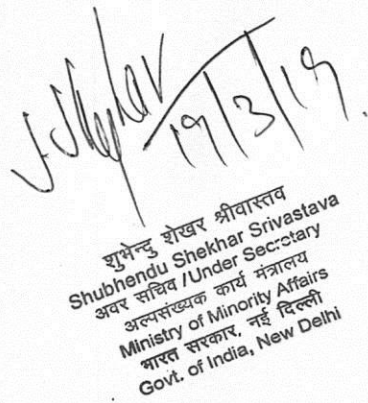 19/3/19.
शुभेन्दु शेखर श्रीवास्तव
Shubhendu Shekhar Srivastava
अवर सचिव /Under Secretary
अल्पसंख्यक कार्य मंत्रालय
Ministry of Minority Affairs
भारत सरकार, नई दिल्ली
Govt. of India, New Delhi